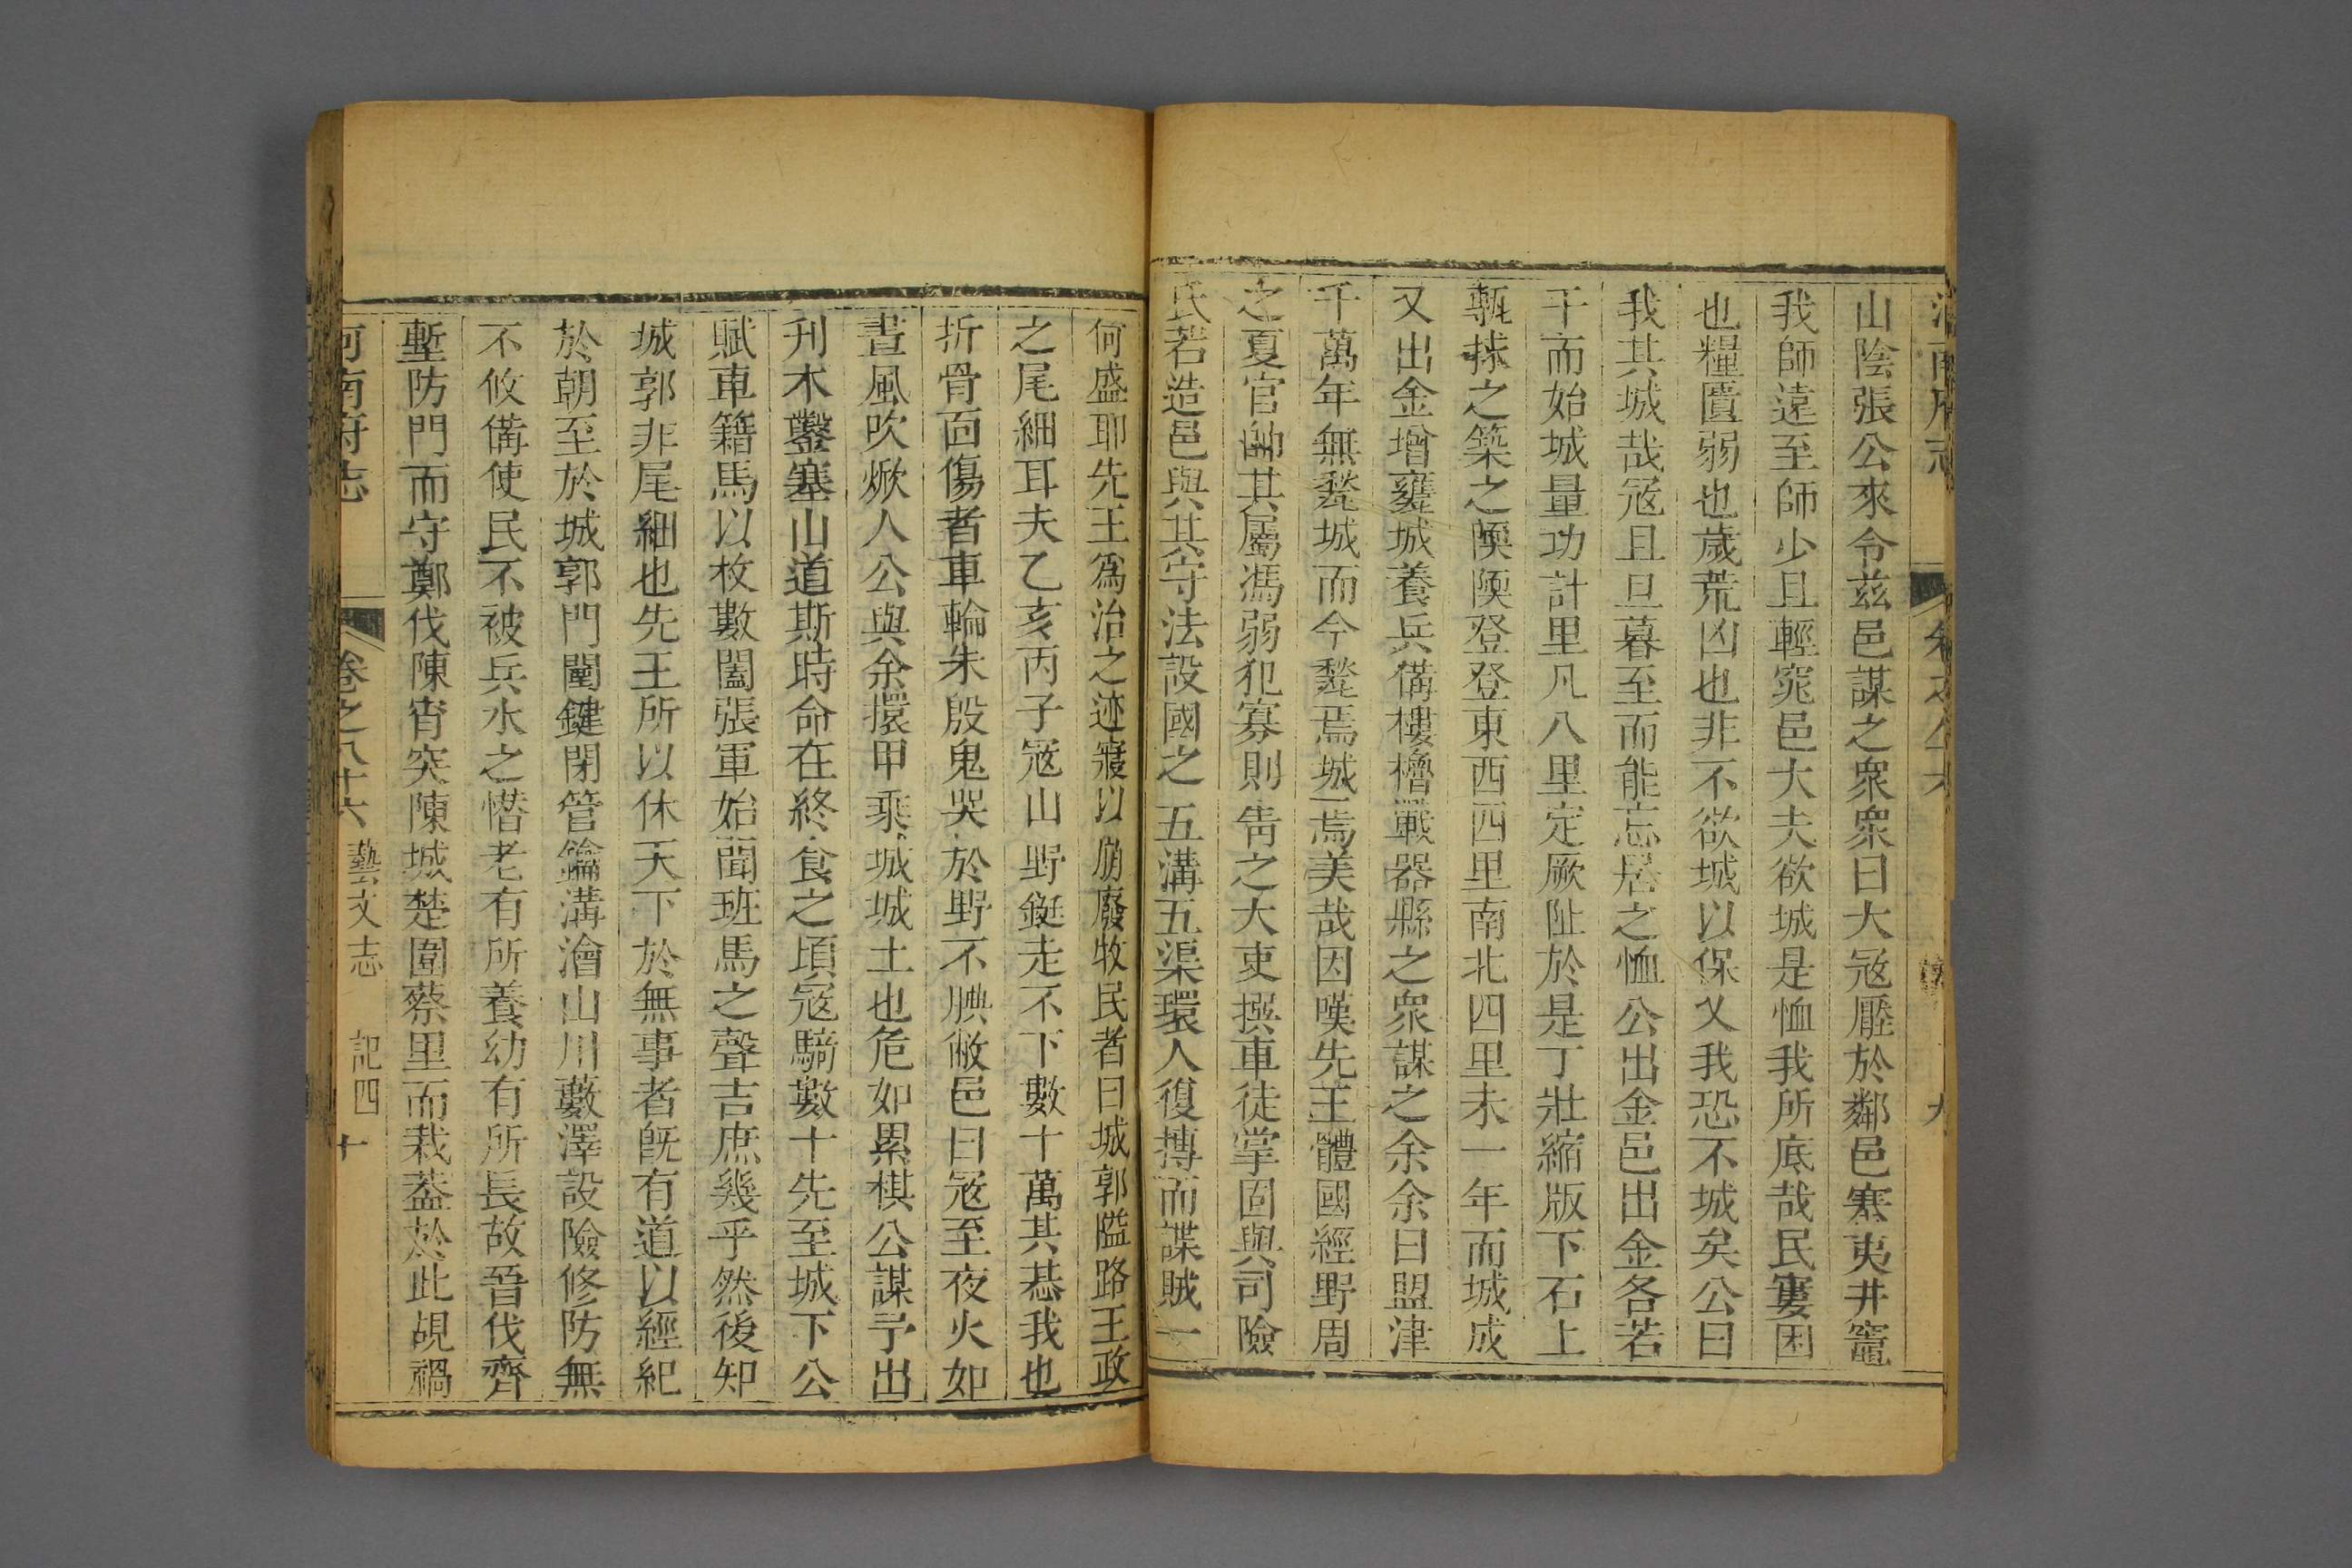 山陰張公來令茲邑謀之衆衆曰大冦壓於鄰邑塞夷井竈
我師遠至師少且輕窕邑大夫欲城是恤我所底哉民寠困
也糧匱弱也歲荒凶也非不欲城以保乂我恐不城矣公曰
我其城哉冦且旦暮至而能忘居之恤公出金邑出金各若
干而始城量功計里凡八里定厥阯於是丁壯縮版下石上
甎捄之築之陾陾登登東西四里南北四里未一年而城成
又出金增甕城養兵備樓櫓戰器縣之衆謀之余余曰盟津
千萬年無甃城而今甃焉城焉美哉因嘆先王體國經野周
之夏官帥其屬馮弱犯寡則眚之大吏撰車徒掌固與司險
氏若造邑與其守法設國之五溝五渠環人復摶而諜賊一
何盛耶先王爲治之迹寢以崩廢牧民者曰城郭隘路王政
之尾細耳夫乙亥丙子冦山野鋌走不下數十萬其惎我也
折骨面傷者車輪朱殷鬼哭於野不腆敝邑曰冦至夜火如
晝風吹焮人公與余擐甲乘城城土也危如累棋公謀予出
刋木鑿塞山道斯時命在終食之頃冦騎數十先至城下公
賦車籍馬以枚數闔張軍始聞班馬之聲吉庶幾乎然後知
城郭非尾細也先王所以休天下於無事者旣有道以經紀
於朝至於城郭門閫鍵閉管鑰溝澮山川藪澤設險修防無
不攸備使民不被兵水之憯老有所養幼有所長故晉伐齊
塹防門而守鄭伐陳宵突陳城楚圍蔡里而栽葢於此覘禍
河南府志
卷之八十六
藝文志
記四
十